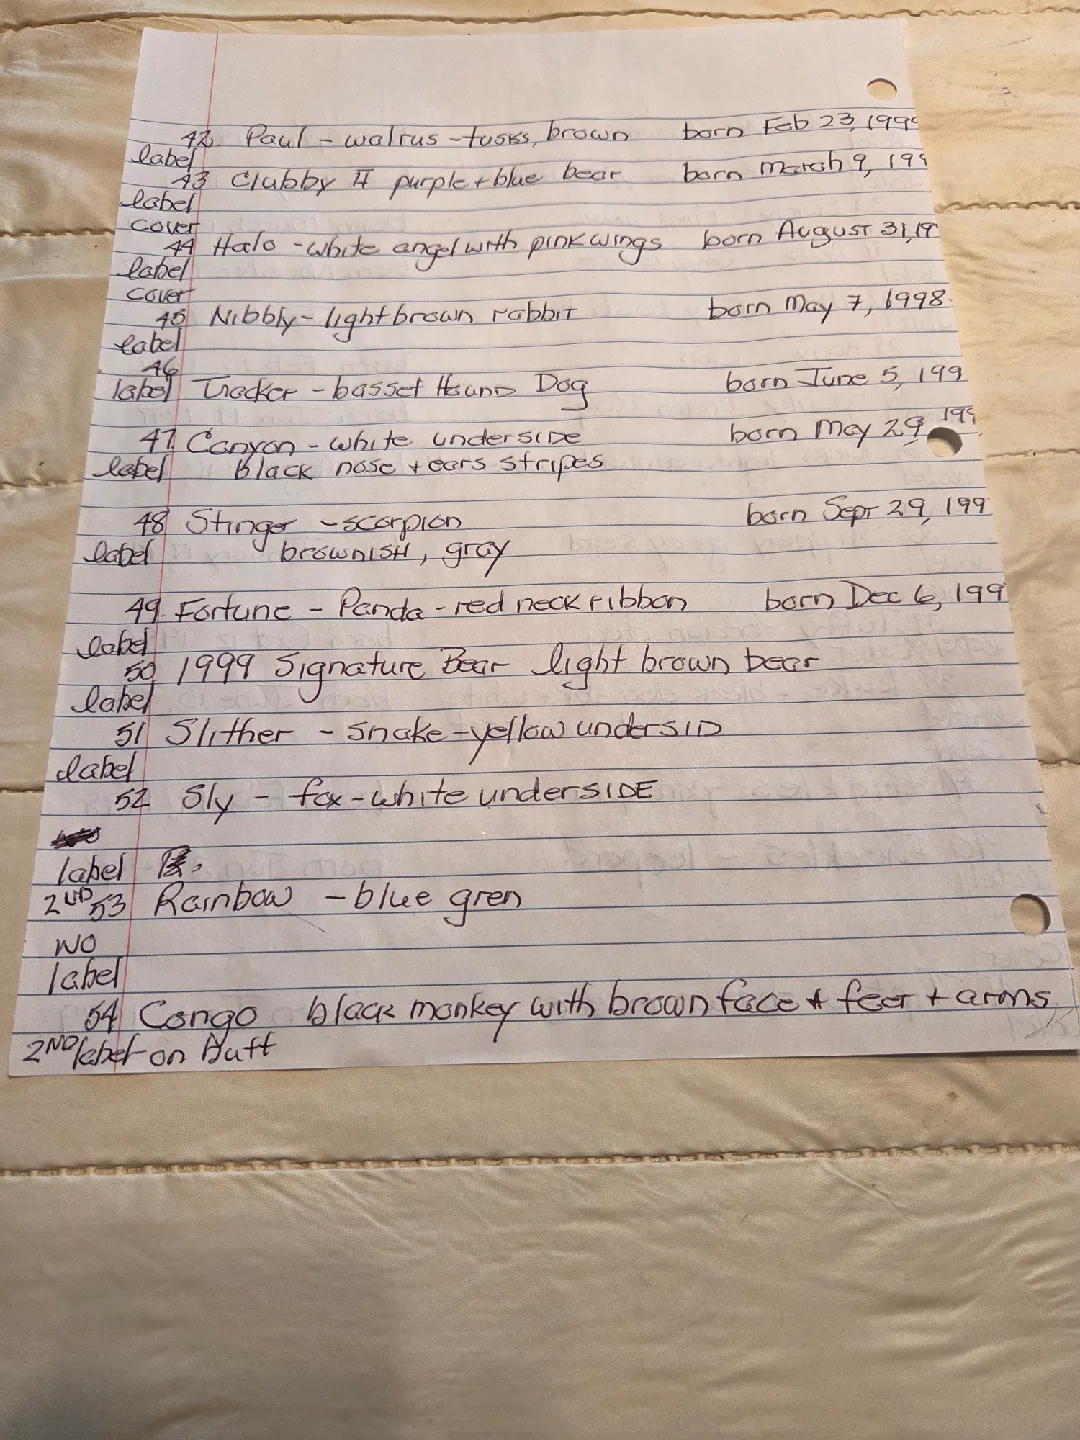 42 Paul - walrus - tusks, brown born Feb 23, 1999
label
43 Clubby II purple + blue bear born March 9, 199
label
cover
44 Halo - white angel with pink wings born August 31, 19
label
cover
45 Nibbly - light brown rabbit born May 7, 1998
label
46
label Tracker - basset Hound Dog born June 5, 199
47 Canyon - white underside born May 29 199
label black nose + ears stripes
48 Stinger - scorpion born Sept 29, 199
label brownish, gray
49 Fortune - Panda - red neck ribbon born Dec 6, 199
label
50 1999 Signature Bear light brown bear
label
51 Slither - snake - yellow undersid
label
52 Sly - fox - white underside
label
2ND 53 Rainbow - blue gren
NO
label
54 Congo black monkey with brown face + feet + arms
2ND label on Butt